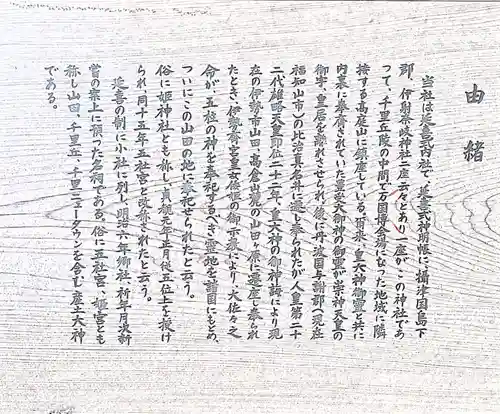 由緒
当社は延喜式内社で、延喜式神明帳に、摂津国島下
郡、伊射奈岐神社二座云々とあり、一座が、この神社であ
って、千里丘陵の中間で万国博会場になった地域に隣
接する高庭山に鎮座している。古来、皇大神御霊と共に
内裏に奉斎されていた豊受大御神の御霊が崇神天皇の
御宇、皇居を離れさせられ、後に丹波国与謝郡(現在
福知山市)の比治真名井に遷し奉られたが人皇第二十
二代雄略天皇即位二十二年、皇大神の御神誨により現
在の伊勢市山田、高倉山麓の山田ヶ原に遷座し奉られ
たとき、伊勢斎宮皇女倭姫の御示教により、大佐々之
命が、五柱の神を奉祀するべき霊地を諸国にもとめ、
ついにこの山田の地に奉祀せられたと云う。
俗に姫神社とも称し、貞観元年正月従五位上を授け
られ、同十五年五社宮と改斎されたと云う。
延喜の制に小社に列し、明治六年郷社、祈年月次新
嘗の案上に預った古祠である。俗に五社宮、姫宮とも
称し山田、千里丘、千里ニュータウンを含む、産土大神
である。